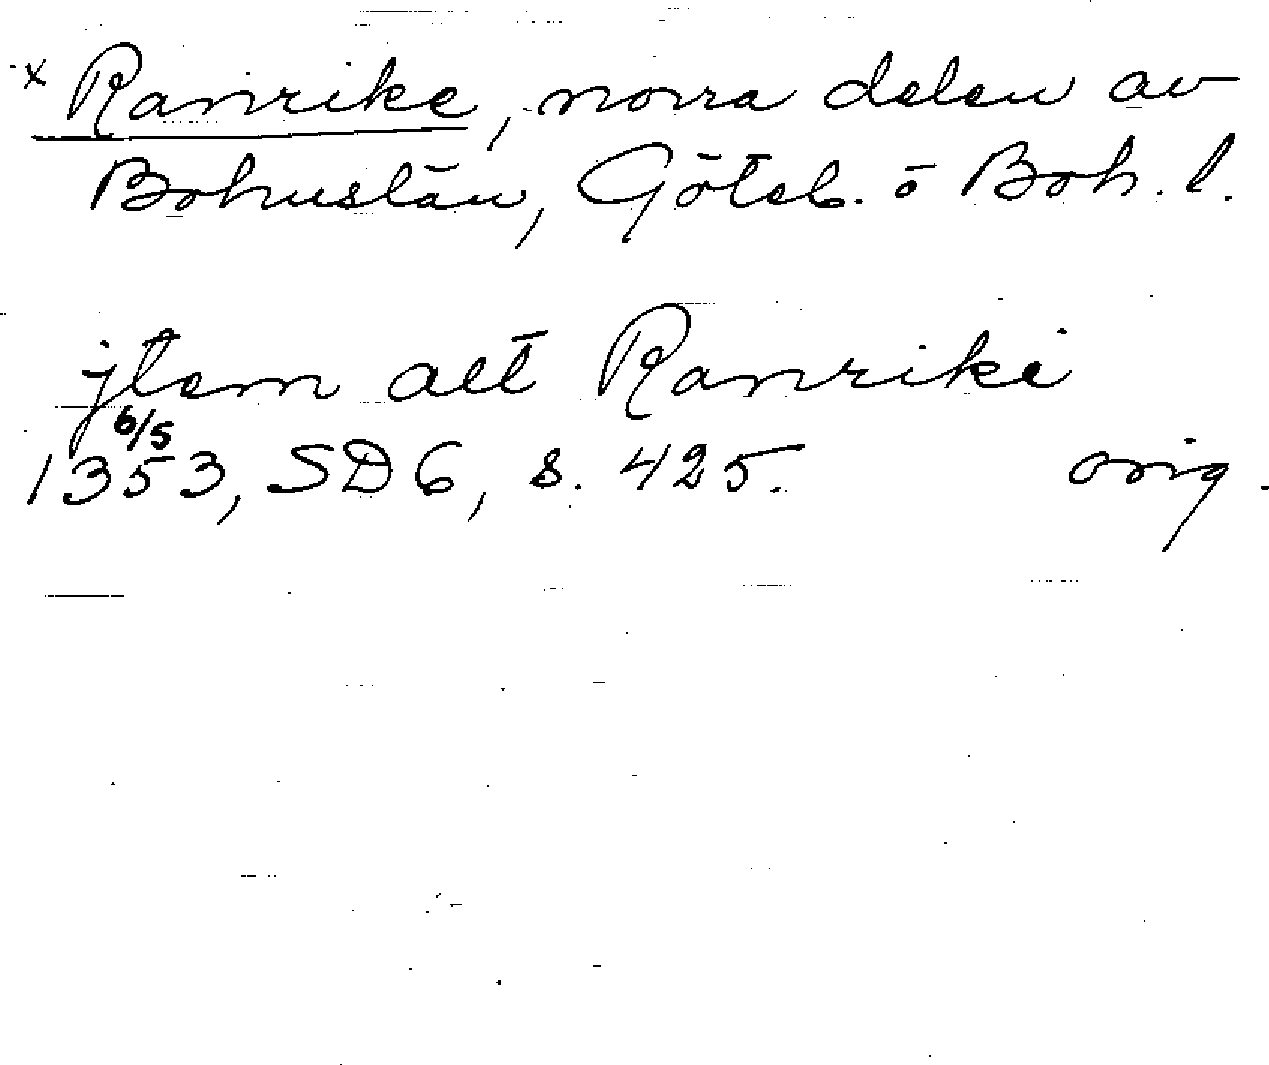 x Ranrike, norra delen av
Bohuslän, Göteb. o Boh. l.
jtem alt Ranriki
6/5
1353, SD 6, s. 425. orig.